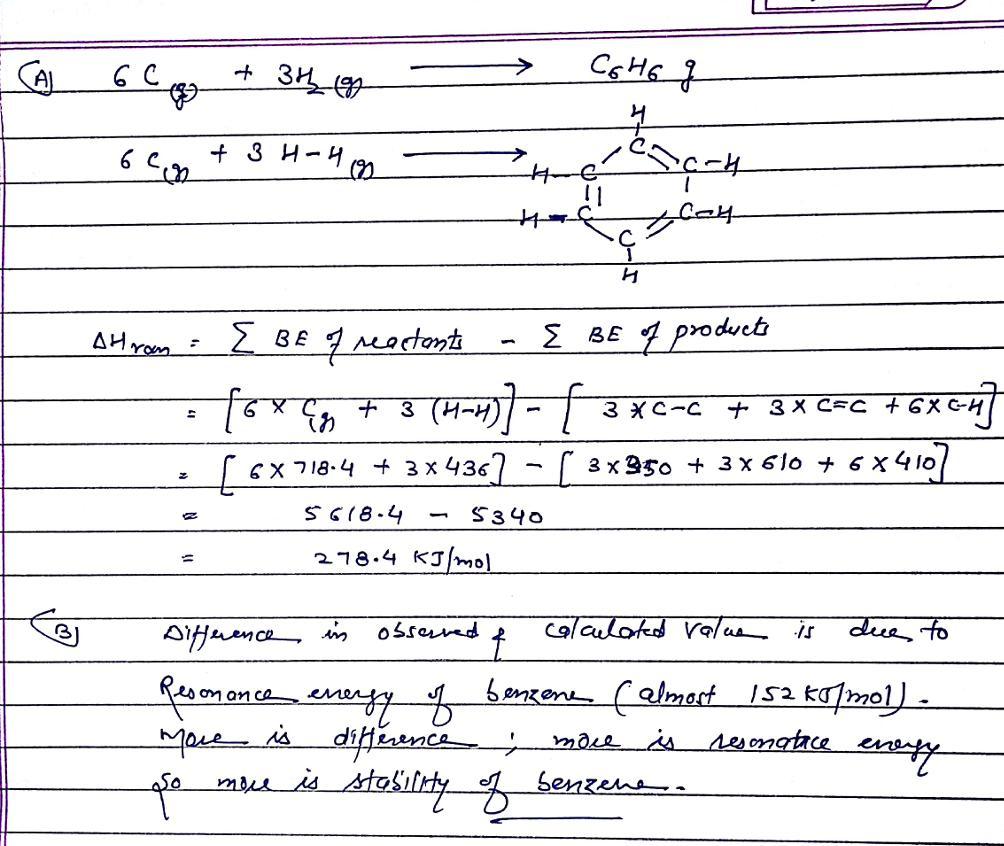 (A) 6 C (g) + 3H₂ (g) ⟶ C6H6 g
6 C(g) + 3 H-H (g) ⟶
H
C
H-C C-H
H-C C-H
C
H
ΔHrxn = Σ BE of reactants - Σ BE of products
= [6 × C(g) + 3 (H-H)] - [3 × C-C + 3 × C=C + 6 × C-H]
= [6 × 718.4 + 3 × 436] - [3 × 350 + 3 × 610 + 6 × 410]
= 5618.4 - 5340
= 278.4 KJ/mol
(B) Difference in observed & calculated value is due to
Resonance energy of benzene (almost 152 KJ/mol).
More is difference ; more is resonatce energy
so more is stability of benzene.